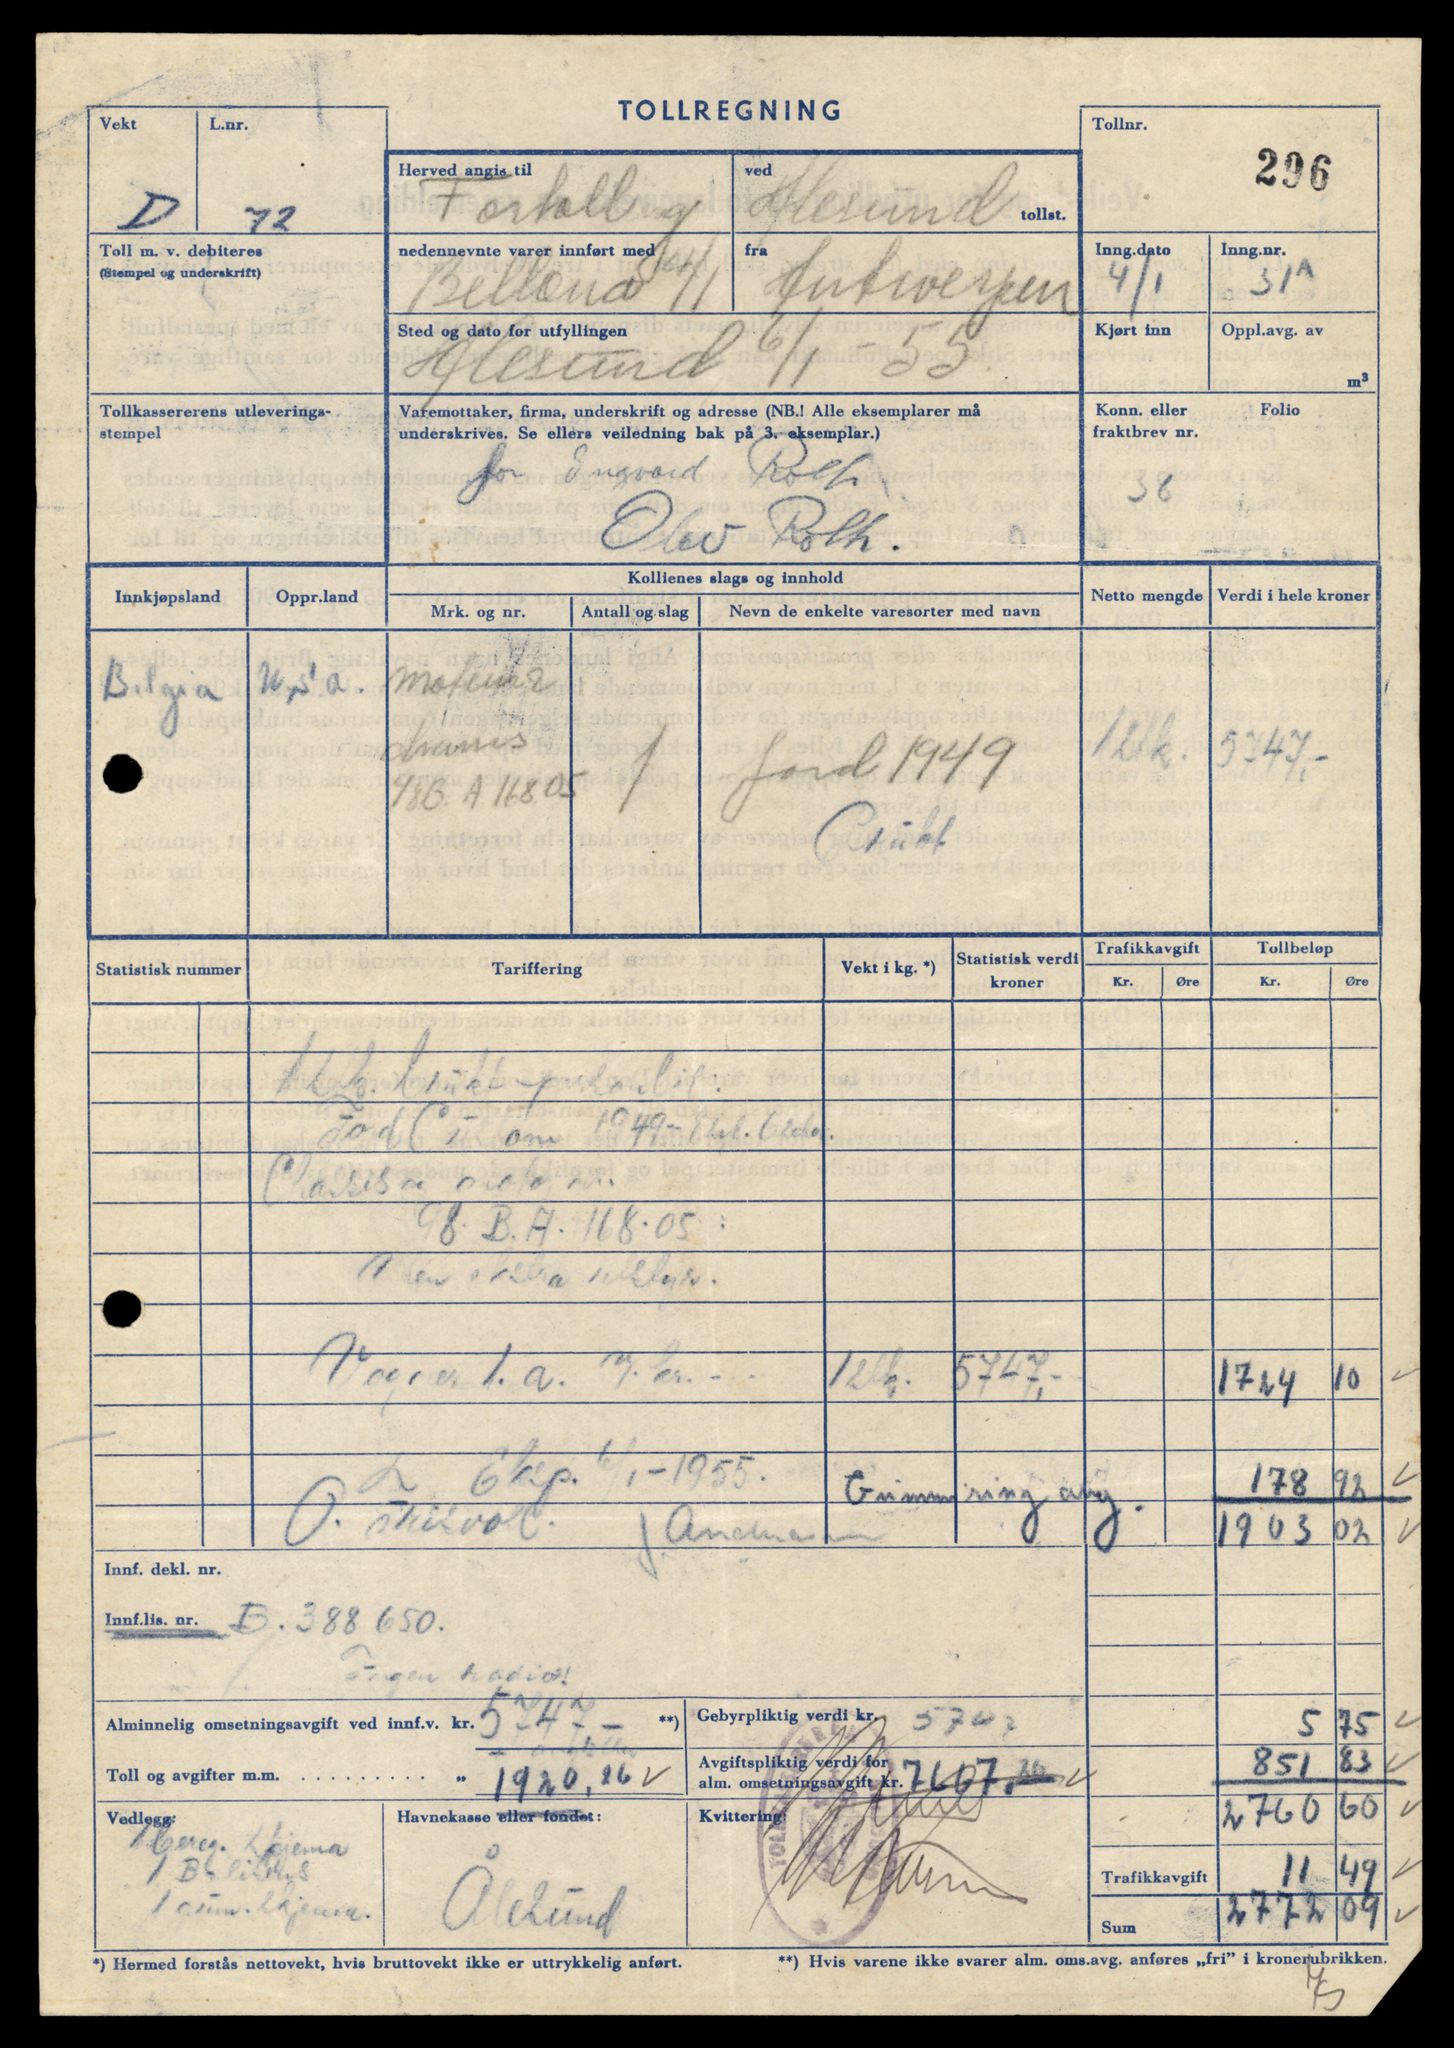 TOLLREGNING
Vekt
L.nr.
D
72
Herved angis til
Fortolling
ved
Ålesund tollst.
Tollnr.
296
Toll m. v. debiteres
(Stempel og underskrift)
nedennevnte varer innført med
Bellona 4/1
fra
Antwerpen
Inng.dato
4/1
Inng.nr.
31A
Sted og dato for utfyllingen
Ålesund 6/1 - 55
Kjørt inn
Oppl.avg. av
m³
Tollkassererens utleverings-
stempel
Varemottaker, firma, underskrift og adresse (NB.! Alle eksemplarer må
underskrives. Se ellers veiledning bak på 3. eksemplar.)
for Ingvard Roth
Olav Roth.
Konn. eller
fraktbrev nr.
Folio
36
Innkjøpsland
Oppr.land
Kollienes slags og innhold
Mrk. og nr.
Antall og slag
Nevn de enkelte varesorter med navn
Netto mengde
Verdi i hele kroner
Belgia U.S.a.
98B.A 168.05 1 ford 1949 1 stk. 5747,-
Brukt
Statistisk nummer
Tariffering
Vekt i kg. *)
Statistisk verdi
kroner
Trafikkavgift
Kr.
Øre
Tollbeløp
Kr.
Øre
1 stk. brukt personbil.
98. B.A. 168.05
Vogner 1. a. 1 stk. 5747,- 1724 10
Eksp. 6/1-1955.
Gummiring avg. 178 92
1903 02
Innf. dekl. nr.
Innf.lis. nr. B. 388650.
Ingen radio!
Alminnelig omsetningsavgift ved innf.v. kr. 5747,- **)
Toll og avgifter m.m. . . . . . . . . . „ 1920,26
Gebyrpliktig verdi kr. 5747
Avgiftspliktig verdi for
alm. omsetningsavgift kr. 7667,26
5 75
851 83
2760 60
Vedlegg:
1 skjema
1
1 skjema.
Havnekasse eller fondet:
Ålesund
Kvittering:
Trafikkavgift 11 49
Sum 2772 09
*) Hermed forstås nettovekt, hvis bruttovekt ikke er uttrykkelig anført.
**) Hvis varene ikke svarer alm. oms.avg. anføres „fri” i kronerubrikken.